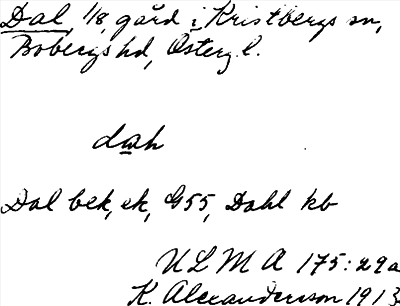 Dal, 1/8, gård i Kristbergs sn,
Bobergs hd, Österg. l.
dɑh
Dal bek, ek, G55, Dahl kb
ULMA 175:29a
K. Alexanderson 1913